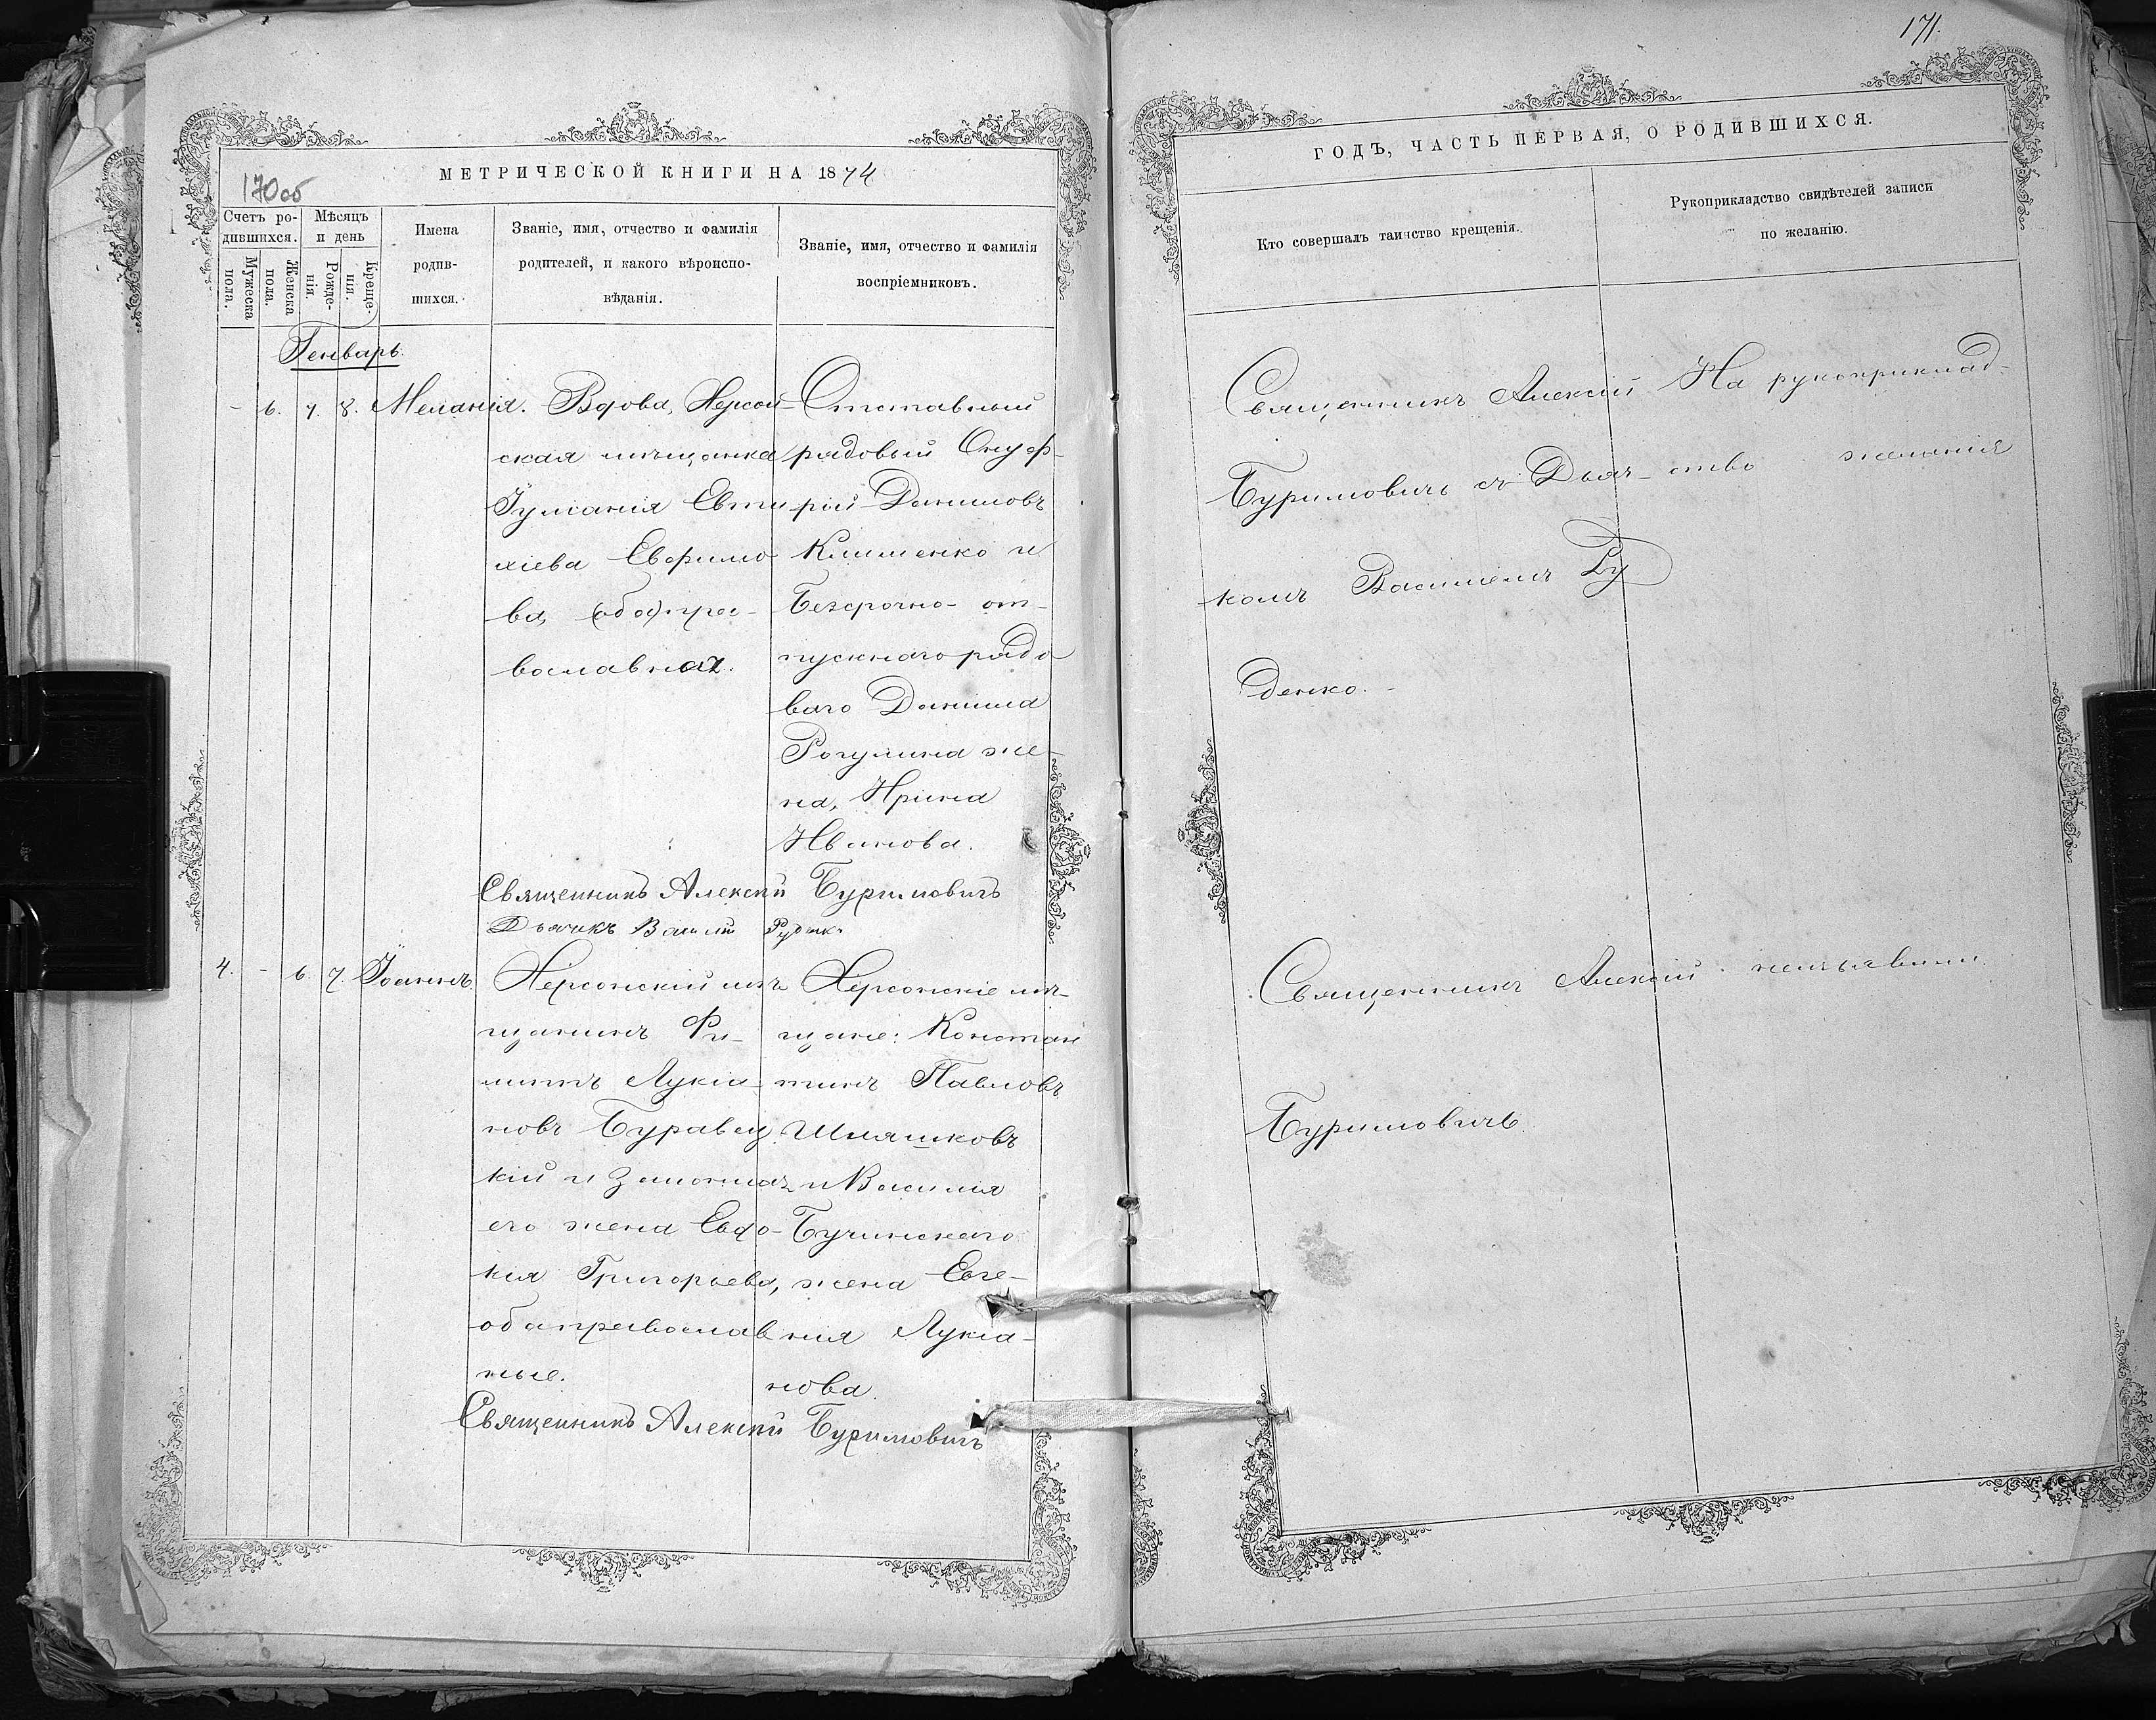 171.
МЕТРИЧЕСКОЙ КНИГИ НА 1874
170об
Счетъ ро-
дившихся.
Мужеска
пола.
Женска
пола.
Мѣсяцъ
и день
Рожде-
нія.
Креще-
нія.
Имена
родив-
шихся.
Званіе, имя, отчество и фамилія
родителей, и какого вѣроиспо-
вѣданія.
Званіе, имя, отчество и фамилія
воспріемниковъ.
Генварь.
- 6. 7. 8. Меланія.
Вдова, Херсон-
ская мѣщанка
Іуліанія Евти
хіева Ефримо
ва, (оба) пра-
вославная.
Отставный
рядовый Онуф-
рій Даниловъ
Клименко и
Безсрочно-от-
пускнаго рядо
ваго Даніила
Рогулина же-
на, Ирина
Иванова.
Священникъ Алексій Буримовичъ
Дьячекъ Василій Руденко
4. - 6. 7. Іоаннъ.
Херсонскій мѣ
щанинъ Фи-
липпъ Лукіа-
новъ Буравиц
кій и законная
его жена Евдо-
кія Григорьева,
оба православ
ные.
Херсонскіе мѣ-
щане: Констан
тинъ Павловъ
Шляшковъ
и Василія
Бучинскаго
жена Евге-
нія Лукіа-
нова.
Священникъ Алексій Буримовичъ
ГОДЪ, ЧАСТЬ ПЕРВАЯ, О РОДИВШИХСЯ.
Кто совершалъ таинство крещенія.
Рукоприкладство свидѣтелей записи
по желанію.
Священникъ Алексій
Буримовичъ съ Дьяч-
комъ Василіемъ Ру
денко.
На рукоприклад-
ство желанія
Священникъ Алексій
Буримовичъ
неизъявили.